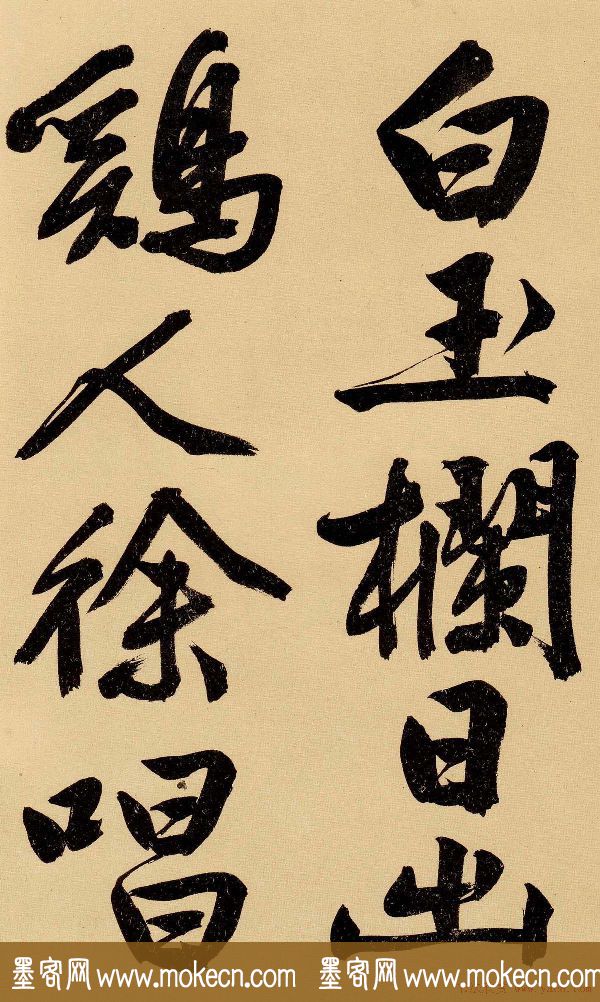 白玉欄日出
鷄人徐唱
墨客网 www.mokecn.com 墨客网 www.mokecn.com